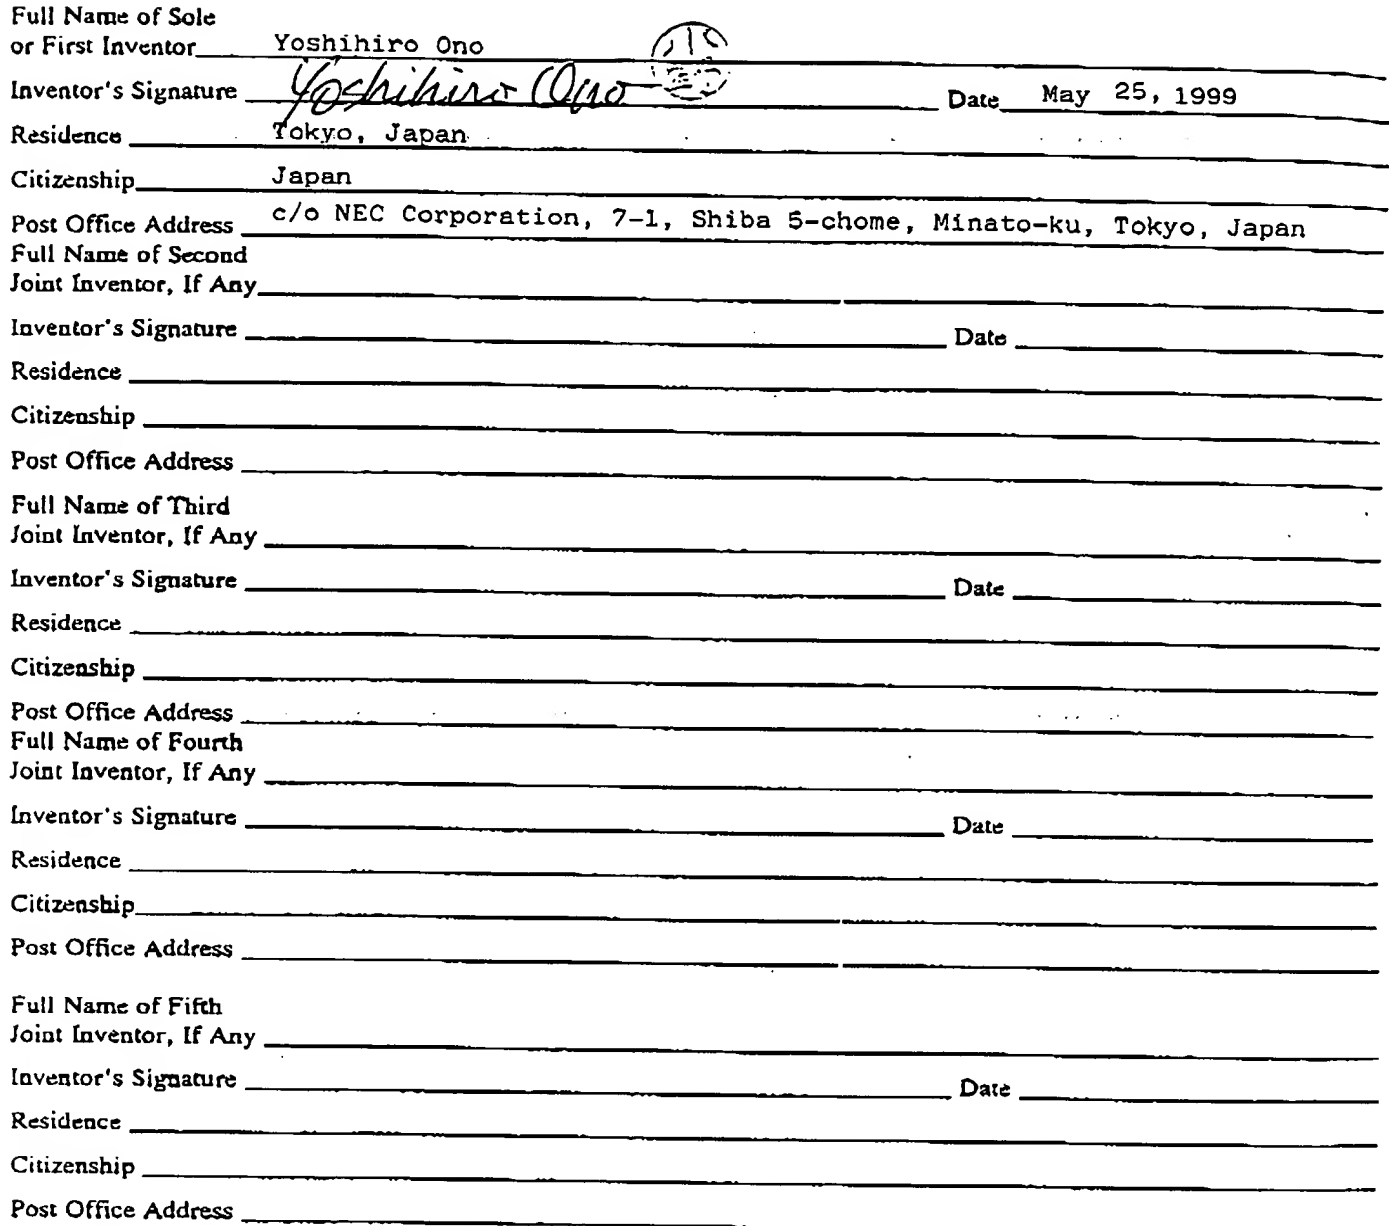 Full Name of Sole
or First Inventor Yoshihiro Ono
Inventor's Signature Yoshihiro Ono Date May 25, 1999
Residence Tokyo, Japan
Citizenship Japan
Post Office Address c/o NEC Corporation, 7-1, Shiba 5-chome, Minato-ku, Tokyo, Japan
Full Name of Second
Joint Inventor, If Any
Inventor's Signature Date
Residence
Citizenship
Post Office Address
Full Name of Third
Joint Inventor, If Any
Inventor's Signature Date
Residence
Citizenship
Post Office Address
Full Name of Fourth
Joint Inventor, If Any
Inventor's Signature Date
Residence
Citizenship
Post Office Address
Full Name of Fifth
Joint Inventor, If Any
Inventor's Signature Date
Residence
Citizenship
Post Office Address